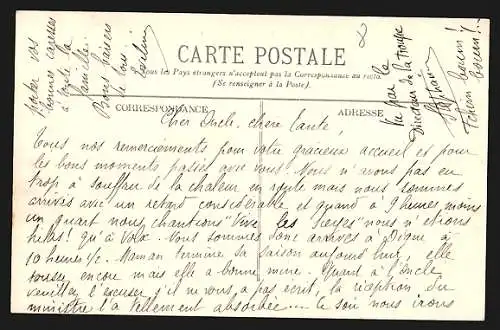 CARTE POSTALE
Tous les Pays étrangers n'acceptent pas la Correspondance au recto
(Se renseigner à la Poste).
CORRESPONDANCE
ADRESSE
Cher Oncle, chère Tante,
Tous nos remerciements pour votre gracieux accueil et pour
les bons moments passés avec vous. Nous n'avons pas eu
trop à souffrir de la chaleur en route mais nous sommes
arrivés avec un retard considérable et quand à 9 heures moins
un quart nous chantions "Vive les" nous n'étions
hélas! qu'à Volx. Nous sommes donc arrivés à Digne à
10 heures 1/2. Maman termine sa saison aujourd'hui, elle
tousse encore mais elle a bonne mine. Quant à l'oncle
veuillez l'excuser s'il ne vous a pas écrit, la réception du
ministre l'a tellement absorbé... Ce soir nous irons
porter vos
bonnes caresses
à toute la
famille.
Bons baisers
de tous
Vu par le
Directeur de la Troupe